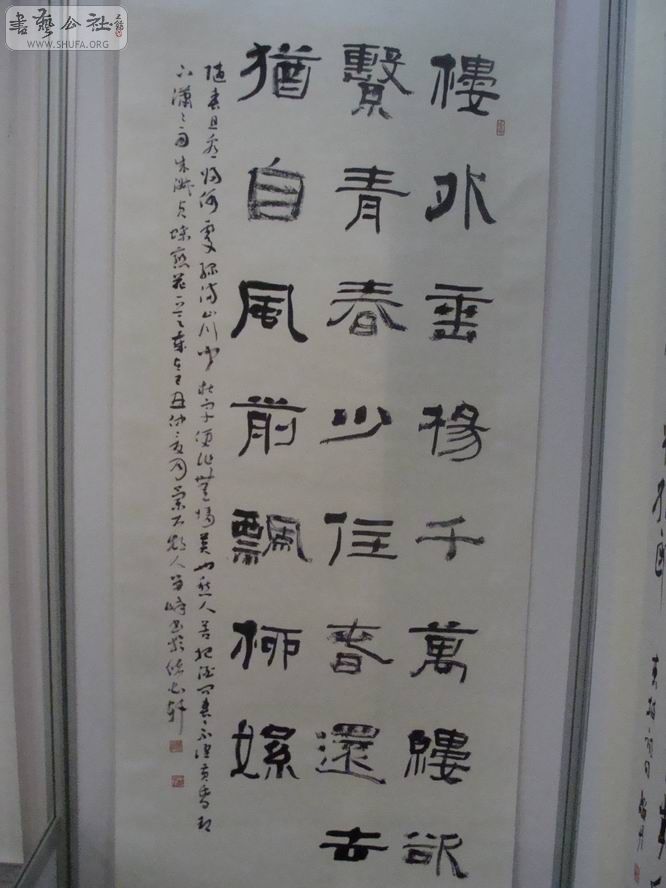 書藝公社
WWW.SHUFA.ORG
樓外垂楊千萬縷欲
繫青春少住春還去
猶自風前飄柳絮
隨春且看歸何處綠滿山川聞杜宇便作無情莫也愁人苦把酒問春不語黃昏却
下瀟〻雨朱淑貞蝶戀花己丑仲夏月人書於軒